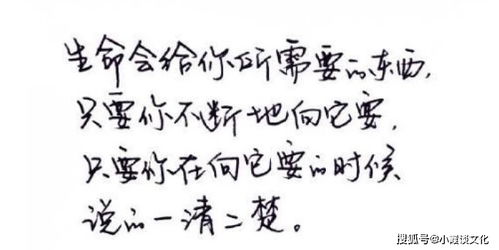 生命会给你所需要的东西,
只要你不断地向它要,
只要你在向它要的时候
说的一清二楚。
搜狐号@小霞谈文化